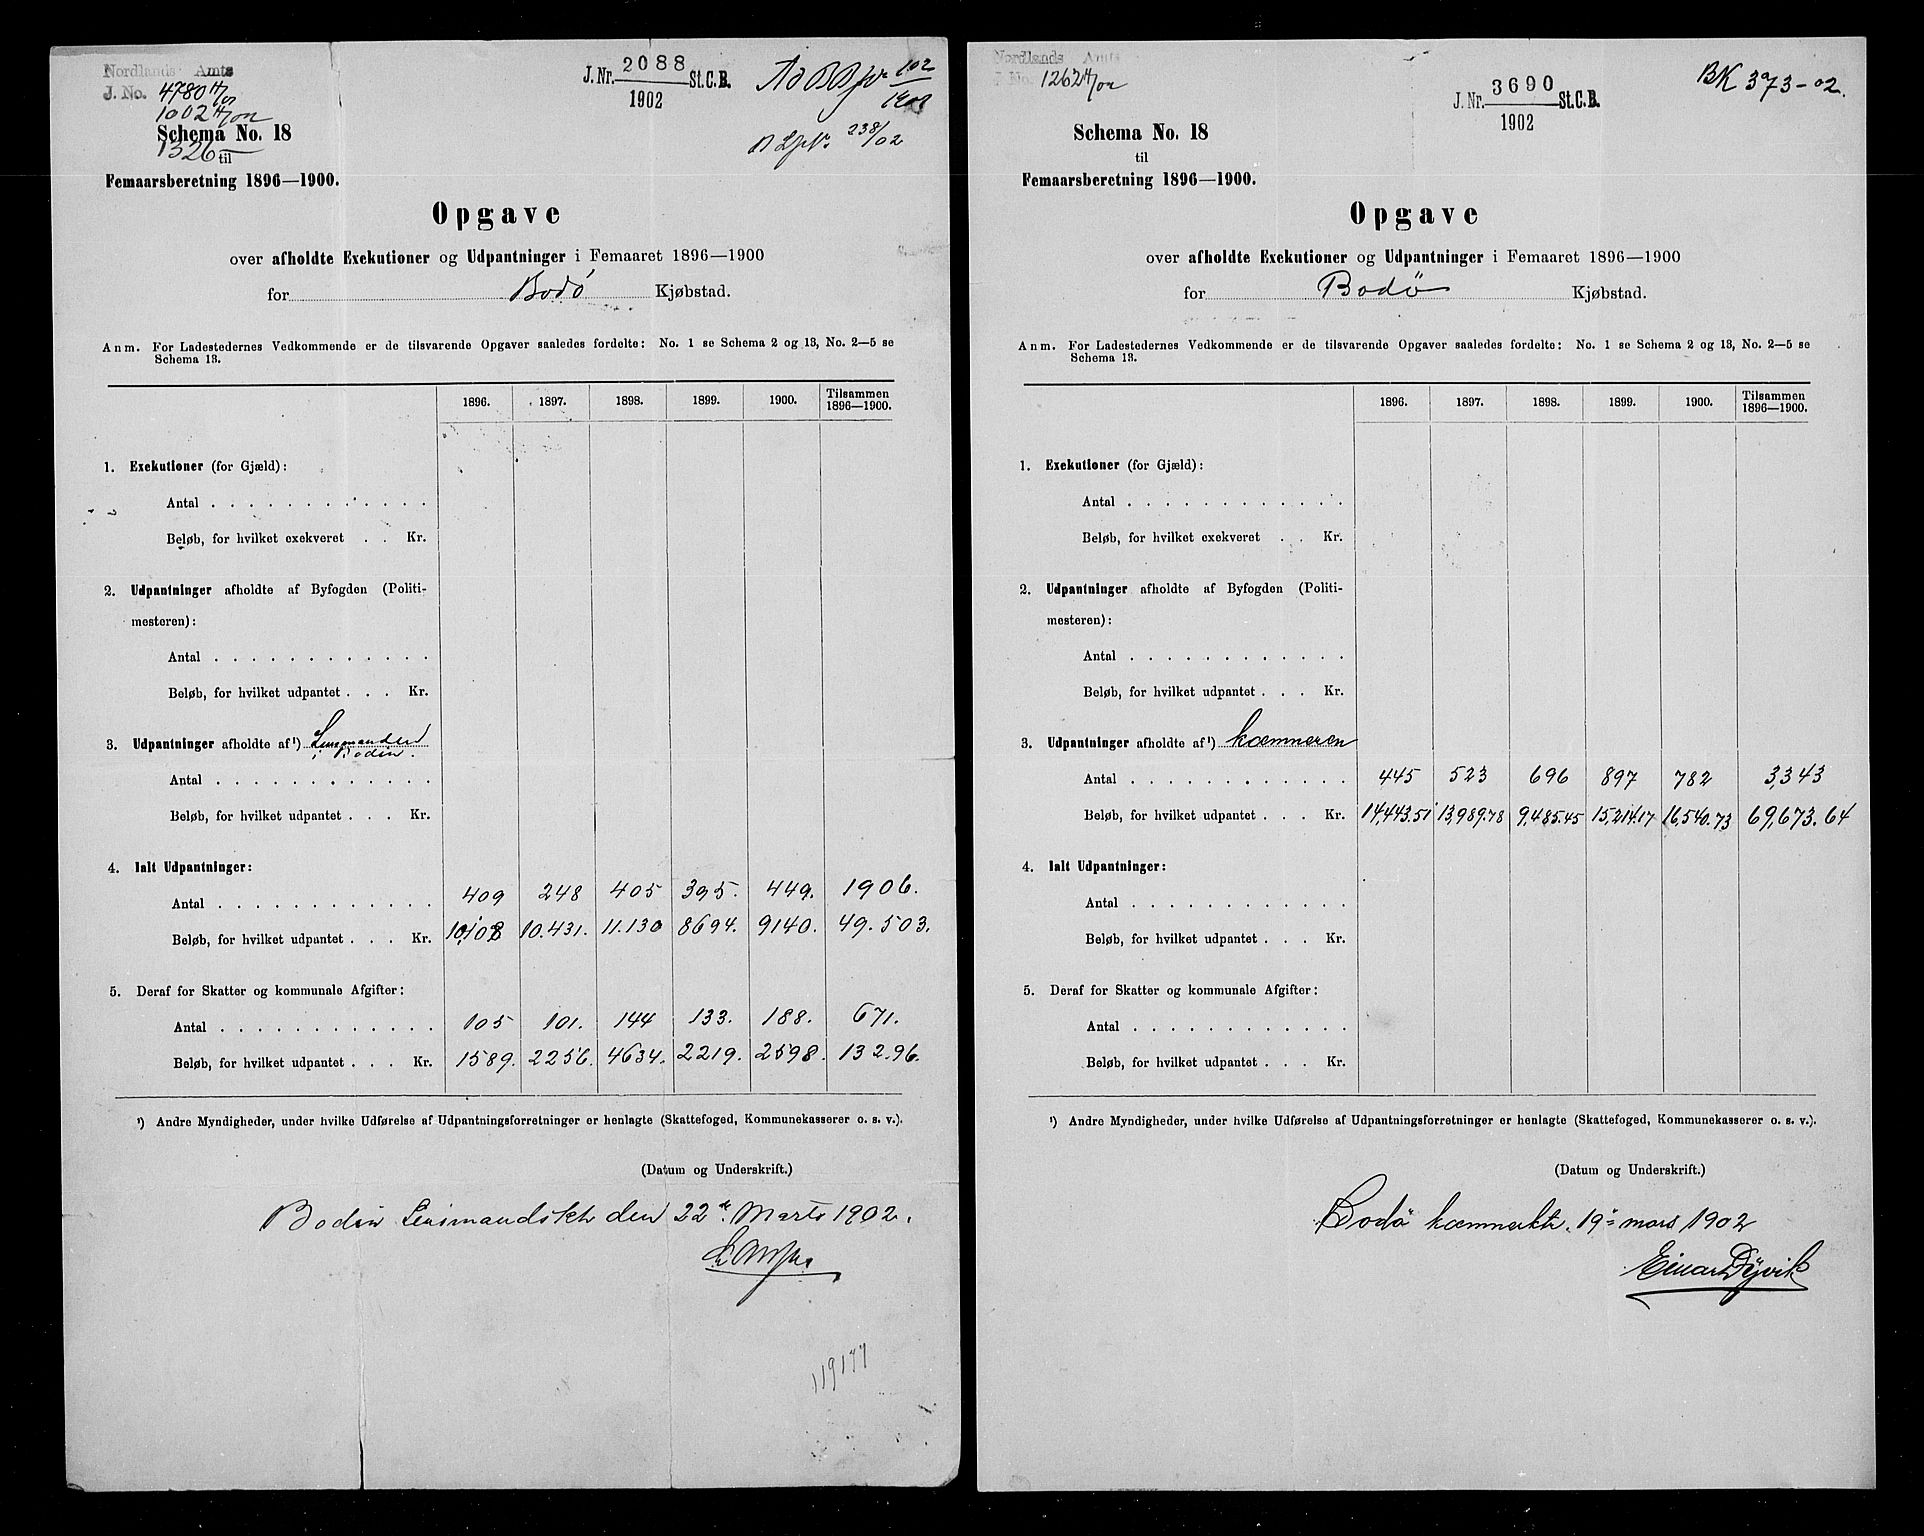 Nordlands Amts
J. No. 4780
1002
1326
J. Nr. 2088 St.C.B.
1902
102
238/02
Schema No. 18
til
Femaarsberetning 1896—1900.
Opgave
over afholdte Exekutioner og Udpantninger i Femaaret 1896—1900
for Bodø Kjøbstad.
Anm. For Ladestedernes Vedkommende er de tilsvarende Opgaver saaledes fordelte: No. 1 se Schema 2 og 13, No. 2—5 se
Schema 13.
1896. 1897. 1898. 1899. 1900. Tilsammen 1896—1900.
1. Exekutioner (for Gjæld):
Antal
Beløb, for hvilket exekveret Kr.
2. Udpantninger afholdte af Byfogden (Politi-
mesteren):
Antal
Beløb, for hvilket udpantet Kr.
3. Udpantninger afholdte af ¹) Lensmanden
i Bodin.
Antal
Beløb, for hvilket udpantet Kr.
4. Ialt Udpantninger:
Antal 409 248 405 395. 449. 1906.
Beløb, for hvilket udpantet Kr. 10,108 10.431. 11.130 8694. 9140. 49.503.
5. Deraf for Skatter og kommunale Afgifter:
Antal 105 101. 144 133. 188. 671.
Beløb, for hvilket udpantet Kr. 1589. 2256. 4634. 2219. 2598. 132.96.
¹) Andre Myndigheder, under hvilke Udførelse af Udpantningsforretninger er henlagte (Skattefoged, Kommunekasserer o. s. v.).
(Datum og Underskrift.)
Bodin Lensmandskt den 22de Marts 1902.
119177
Nordlands Amts
J. No. 1262
J. Nr. 3690 St.C.B.
1902
BK 373-02.
Schema No. 18
til
Femaarsberetning 1896—1900.
Opgave
over afholdte Exekutioner og Udpantninger i Femaaret 1896—1900
for Bodø Kjøbstad.
Anm. For Ladestedernes Vedkommende er de tilsvarende Opgaver saaledes fordelte: No. 1 se Schema 2 og 13, No. 2—5 se
Schema 13.
1896. 1897. 1898. 1899. 1900. Tilsammen 1896—1900.
1. Exekutioner (for Gjæld):
Antal
Beløb, for hvilket exekveret Kr.
2. Udpantninger afholdte af Byfogden (Politi-
mesteren):
Antal
Beløb, for hvilket udpantet Kr.
3. Udpantninger afholdte af ¹) kæmneren
Antal 445 523 696 897 782 3,343
Beløb, for hvilket udpantet Kr. 14,443.51 13,989.78 9,485.45 15,214.17 16,540.73 69,673.64
4. Ialt Udpantninger:
Antal
Beløb, for hvilket udpantet Kr.
5. Deraf for Skatter og kommunale Afgifter:
Antal
Beløb, for hvilket udpantet Kr.
¹) Andre Myndigheder, under hvilke Udførelse af Udpantningsforretninger er henlagte (Skattefoged, Kommunekasserer o. s. v.).
(Datum og Underskrift.)
Bodø kæmnerkt. 19 mars 1902
Einar Dyvik